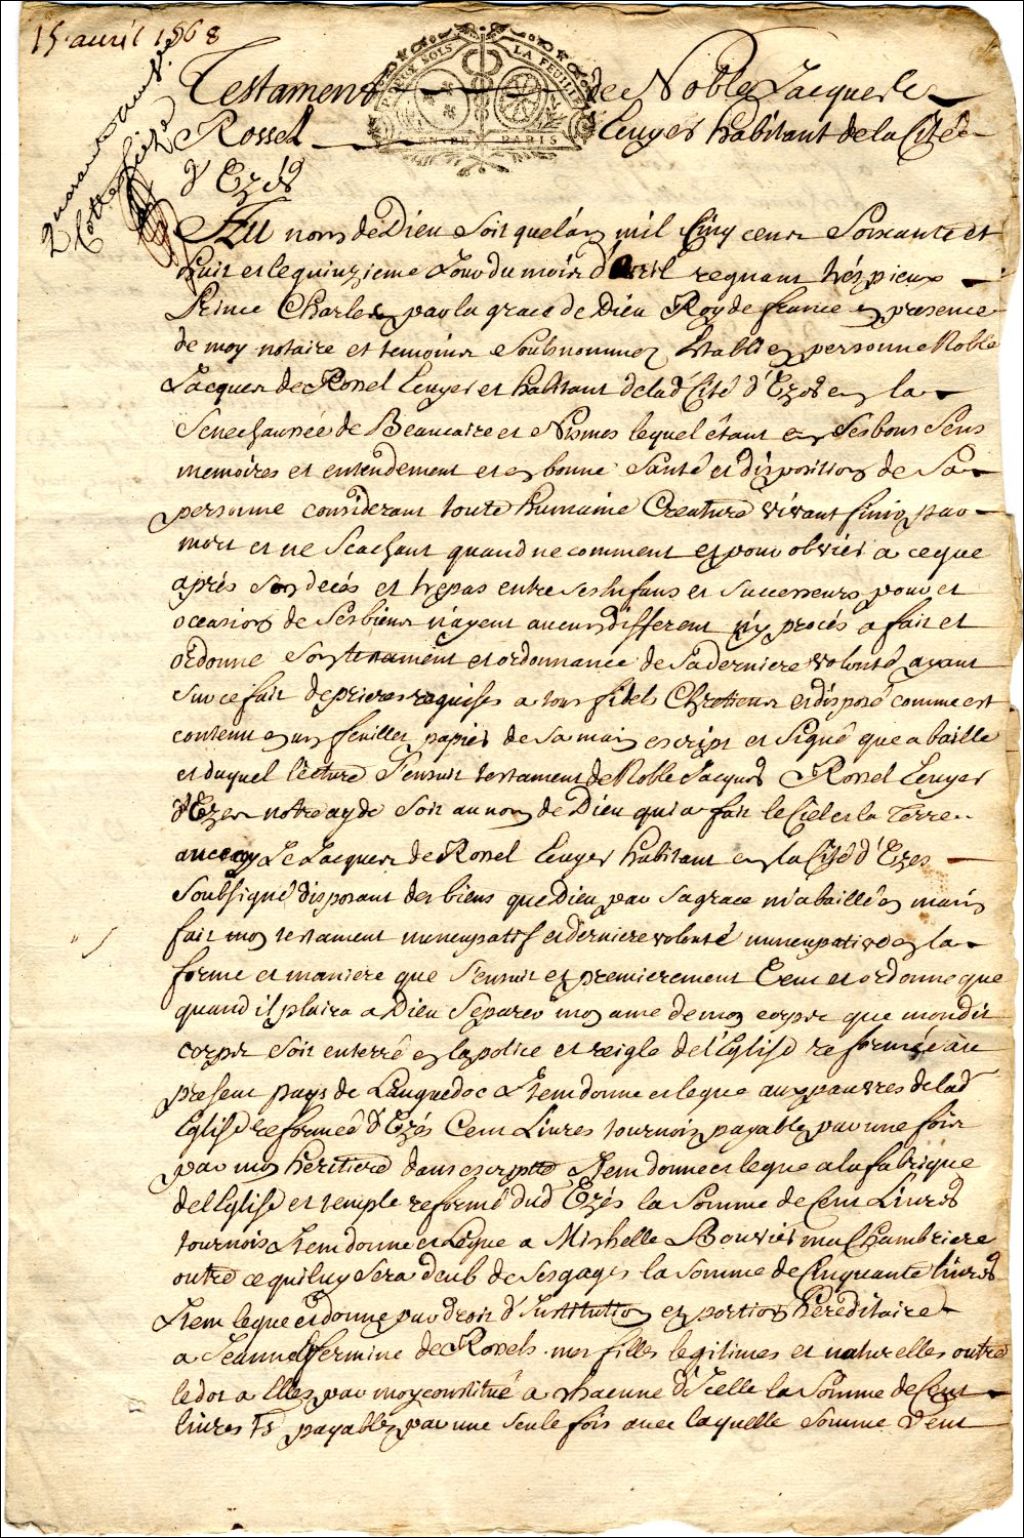 15 avril 1568
quarante
Cotte
DEUX SOLS LA FEUILLE
PARIS
Testament de Noble Jacques de
Rossel Ecuyer habitant de la Cité
d'Ezés
Au nom de Dieu Soit que l'an mil Cinq cens Soixante et
huit et le quinzieme Jour du mois d'avril regnant trés pieux
Prince Charles par la grace de Dieu Roy de france en presence
de moy notaire et temoins Soubsnommez Etabli en personne Noble
Jacques de Rossel Ecuyer et habitant de lad Cité d'Ezés en la
Senechaussée de Beaucaire et Nismes lequel étant en Ses bons Sens
memoires et entendement et en bonne Santé et disposition de Sa
personne considerant toute humaine Creature vivant finir par
mort et ne Scachant quand ne comment et pour obvier a ce que
aprés Son decés et trepas entre Ses Enfans et Successeurs pour et
occasion de Ses biens n'ayent aucun different ny procés a fait et
ordonne Son testament et ordonnance de Sa derniere volonté ayant
Sur ce fait de prieres requises a tous fidels Chretiens et disposé comme est
contenu en un feuillet papier de Sa main escript et Signé que a baillé
et duquel lecture S'ensuit testament de Noble Jacques Rossel Ecuyer
d'Ezes notre ayde Soit au nom de Dieu qui a fait le Ciel et la Terre
Je Jacques de Rossel Ecuyer habitant en la Cité d'Ezes
Soubsigné disposant des biens que Dieu par Sa grace m'a baillé en main
fait mon testament nuncupatif et derniere volonté nuncupative en la
forme et maniere que S'ensuit et premierement Veut et ordonne que
quand il plaira a Dieu Separer mon ame de mon corps que mondit
corps Soit enterré en la police et reigle de l'Eglise reformée au
present pays de Languedoc Item donne et legue aux pauvres de lad
Eglise reformeé d'Ezés Cent Livres tournois payables par une fois
par mon heritiere dans escripte Item donne et legue a la fabrique
de l'Eglise et temple reformé dud Ezés la Somme de Cent Livres
tournois Item donne et Légue a Mishelle Bouvier ma Chambriere
outre ce qui luy Sera deub de Ses gages la Somme de Cinquante livres
Item legue et donne par droit d'Institution et portion hereditaire
a Jeanne fermine de Rossels mes filles legitimes et naturelles outre
le dot a Elles par moy constitué a chacune d'Icelle la Somme de Cent
livres Ts payables par une Seule fois avec laquelle Somme veut